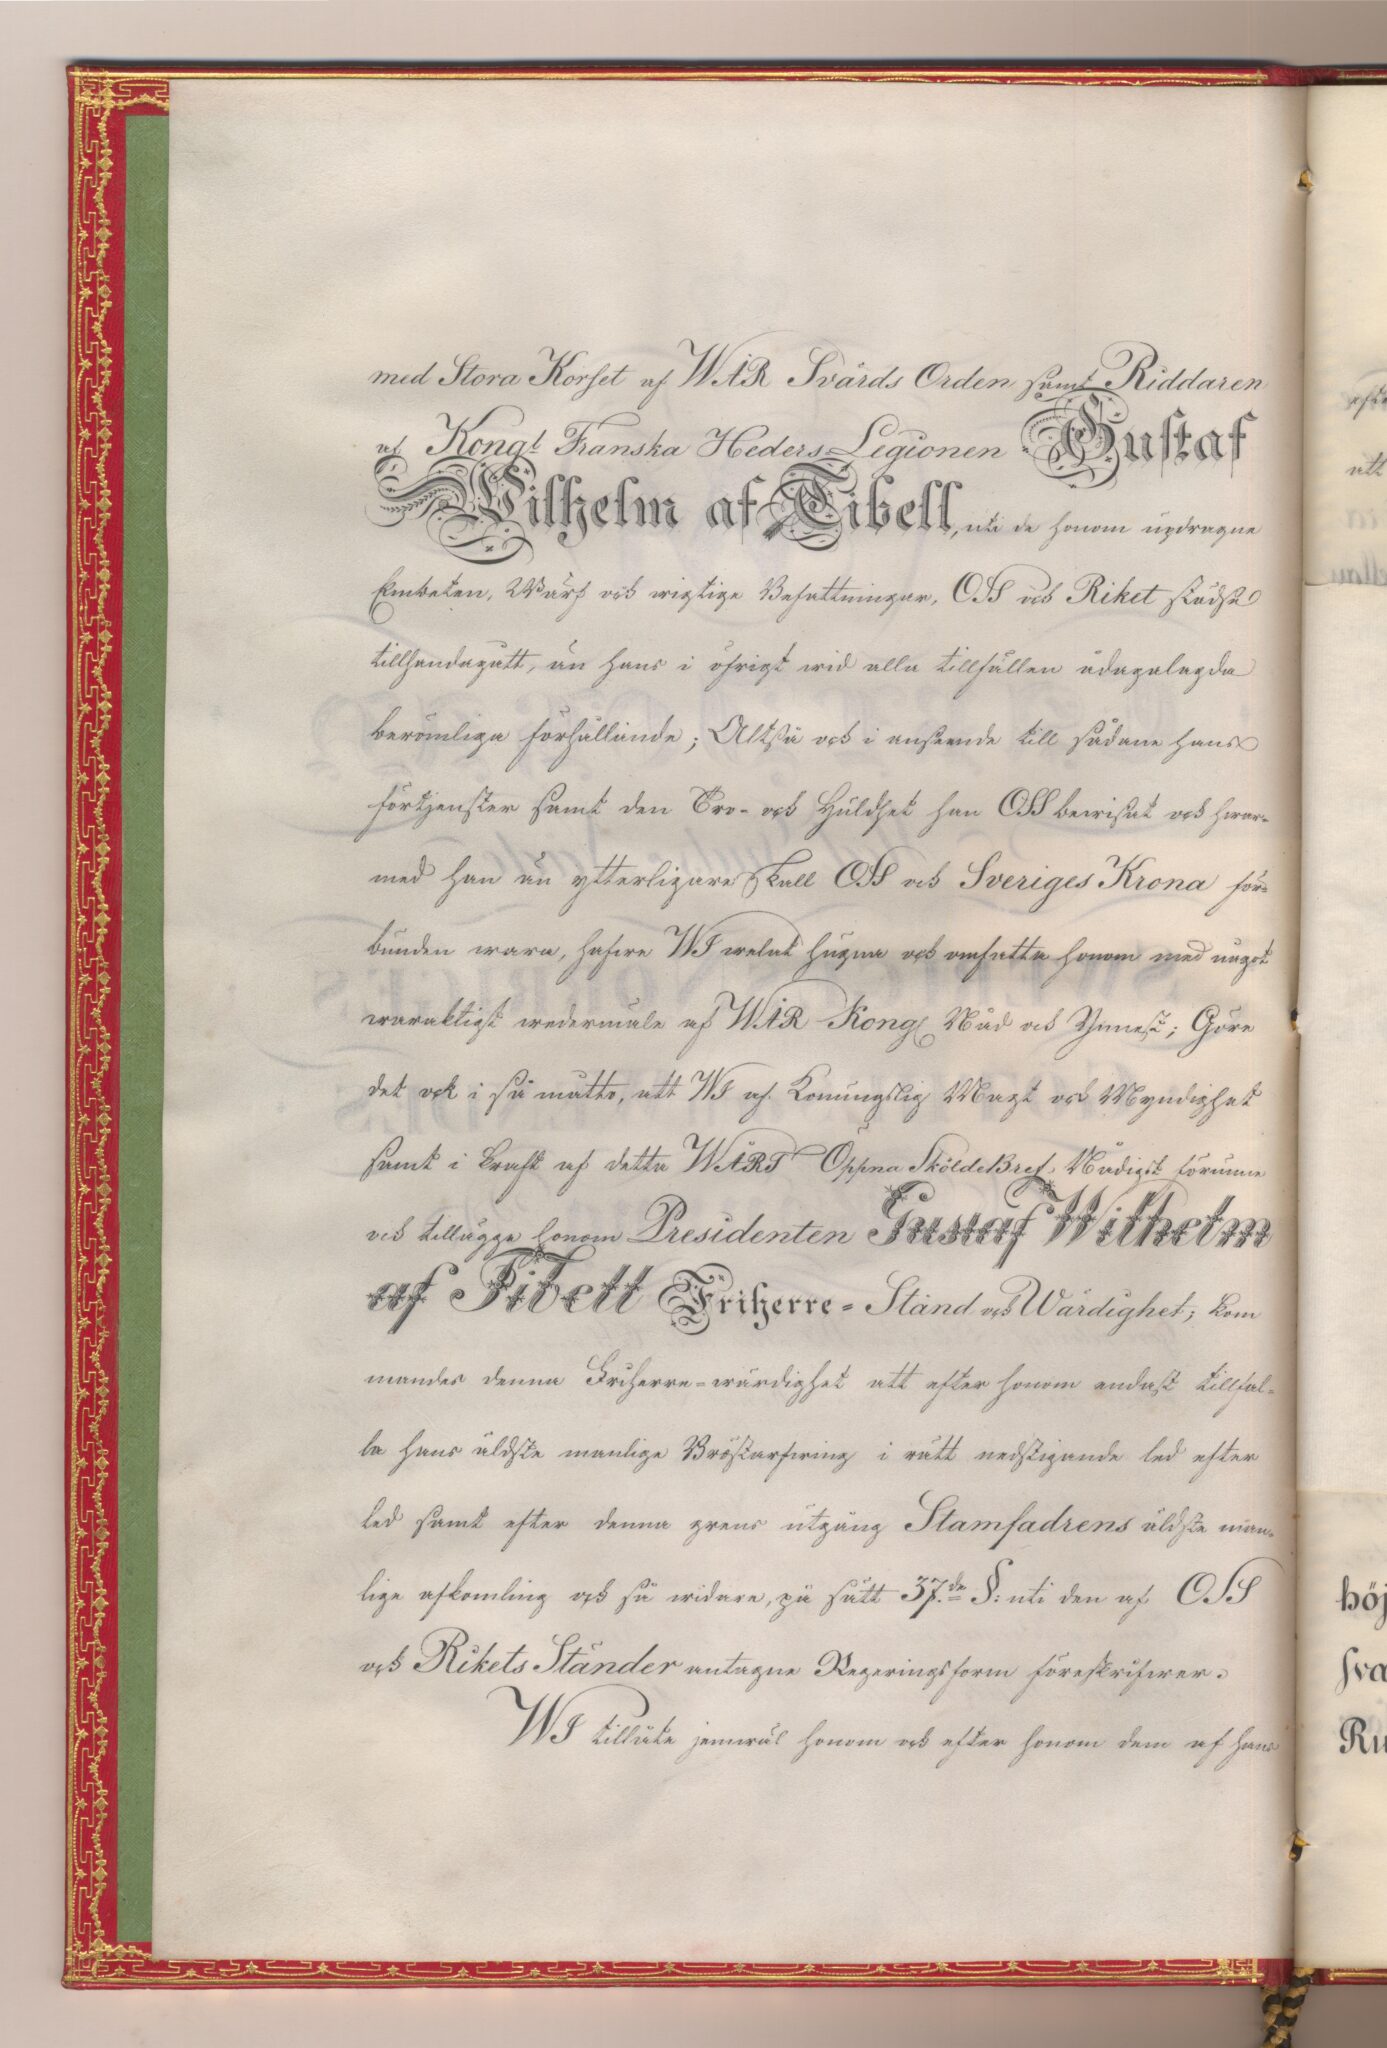 med Stora Korset af WÅR Svärds Orden samt Riddaren
af Kongl. Franska Heders-Legionen Gustaf
Wilhelm af Tibell, uti de honom updragne
Embeten, Wärf och wigtige Befattningar, OSS och Riket städse
tillhandagått, än hans i öfrigt wid alla tillfällen ådagalagda
berömliga förhållande; Altså och i anseende till sådane hans
förtjenster samt den Tro- och Huldhet han OSS bewisat och hwar-
med han än ytterligare skall OSS och Sveriges Krona för-
bunden wara, hafwe WI welat hugna och omfatta honom med något
waraktigt wedermäle af WÅR Kongl. Nåd och Ynnest; Göre
det ock i så matto, att WI af Konungslig Magt och Myndighet
samt i kraft af detta WÅRT Öppna SköldeBref, Nådigst förunne
och tillägge honom Presidenten Gustaf Wilhelm
af Tibell Friherre- Stånd och Wärdighet; kom
mandes denna Friherre-wärdighet att efter honom endast tillfal-
la hans äldste manlige Bröstarfwing i rätt nedstigande led efter
led samt efter denna grens utgång Stamfadrens äldste man-
lige afkomling och så widare, på sätt 37.de §: uti den af OSS
och Rikets Ständer antagne Regeringsform föreskrifwer.
WI tillåte jemwäl honom och efter honom dem af hans
höj
sva
Ru